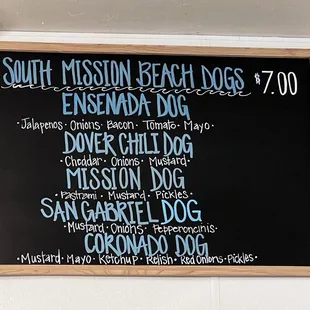 SOUTH MISSION BEACH DOGS $7.00
ENSENADA DOG
·Jalapenos · Onions · Bacon · Tomato · Mayo ·
DOVER CHILI DOG
· Cheddar · Onions · Mustard ·
MISSION DOG
· Pastrami · Mustard · Pickles ·
SAN GABRIEL DOG
· Mustard · Onions · Pepperoncinis ·
CORONADO DOG
· Mustard · Mayo · Ketchup · Relish · Red Onions · Pickles ·